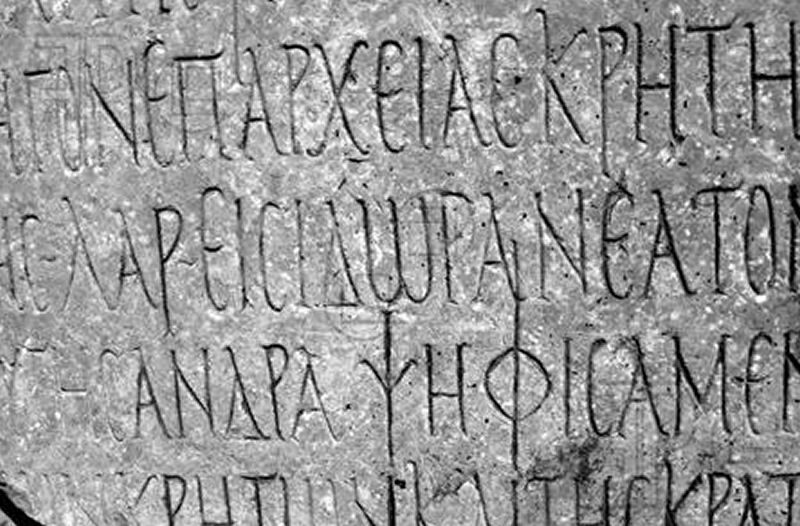 ΑΓΩΝ ΕΠΑΡΧΕΙΑC ΚΡΗΤΗ
ΗC ΛΑΡΕΙCΙΔѠΡΑΝ ΕΑΤΟΝ
CΑΝΔΡΑ ΨΗΦΙCΑΜΕΝ
ΚΡΗΤѠΝ ΚΑΙ ΤΗC ΚΡΑΤ